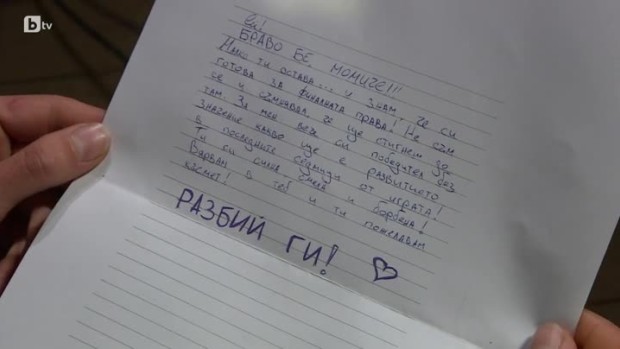 btv
Ви!
БРАВО БЕ, МОМИЧЕ!!!
МАЛКО ТИ ОСТАВА... И ЗНАМ, ЧЕ СИ
ГОТОВА ЗА ФИНАЛНАТА ПРАВА! НЕ СЪМ
СЕ И СЪМНЯВАЛА, ЧЕ ЩЕ СТИГНЕМ ДО
ТАМ. ЗА МЕН ВЕЧЕ СИ ПОБЕДИТЕЛ БЕЗ
ЗНАЧЕНИЕ КАКВО ЩЕ Е РАЗВИТИЕТО
В ПОСЛЕДНИТЕ СЕДМИЦИ ОТ ИГРАТА!
ТИ СИ СИЛНА, УМНА И БОРБЕНА!
ВЯРВАМ В ТЕБ И ТИ ПОЖЕЛАВАМ
КЪСМЕТ!
РАЗБИЙ ГИ!